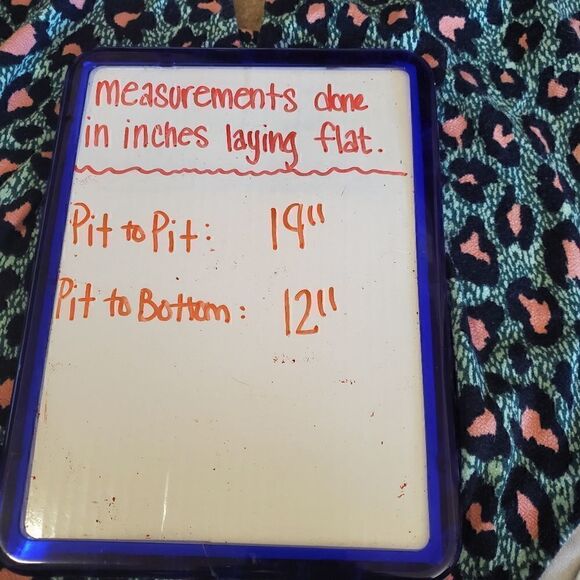 measurements done
in inches laying flat.
Pit to Pit: 19"
Pit to Bottom: 12"